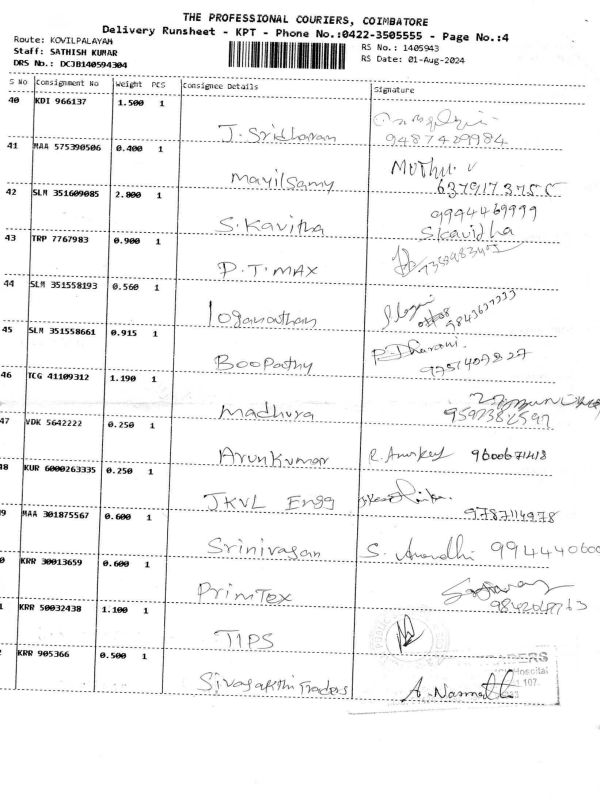 THE PROFESSIONAL COURIERS, COIMBATORE
Delivery Runsheet - KPT - Phone No.:0422-3505555 - Page No.:4
Route: KOVILPALAYAM
Staff: SATHISH KUMAR
DRS No.: DCJB140594304
RS No.: 1405943
RS Date: 01-Aug-2024
S No Consignment No Weight PCS Consignee Details Signature
40 KDI 966137 1.500 1
J. Sridharan 9487409984
41 MAA 575390506 0.400 1
Mayilsamy Muthu. V
42 SLM 351609085 2.800 1
9994469999
S. Kavitha Skavidha
43 TRP 7767983 0.900 1
P.T.MAX
44 SLM 351558193 0.560 1
loganathan 9843637333
45 SLM 351558661 0.915 1
P. Dharani.
Boopathy 9751409827
46 TCG 41109312 1.190 1
Madhura 9597382597
47 VDK 5642222 0.250 1
Arunkumar 9600671418
48 KUR 6000263335 0.250 1
JKVL Engg 9787114978
9 MAA 301875567 0.600 1
Srinivasan S. Anandhi 994440600
0 KRR 30013659 0.600 1
PrimTex
1 KRR 50032438 1.100 1
TIPS
2 KRR 905366 0.500 1
PERS
Hospital
107.
Sivasakthi Traders